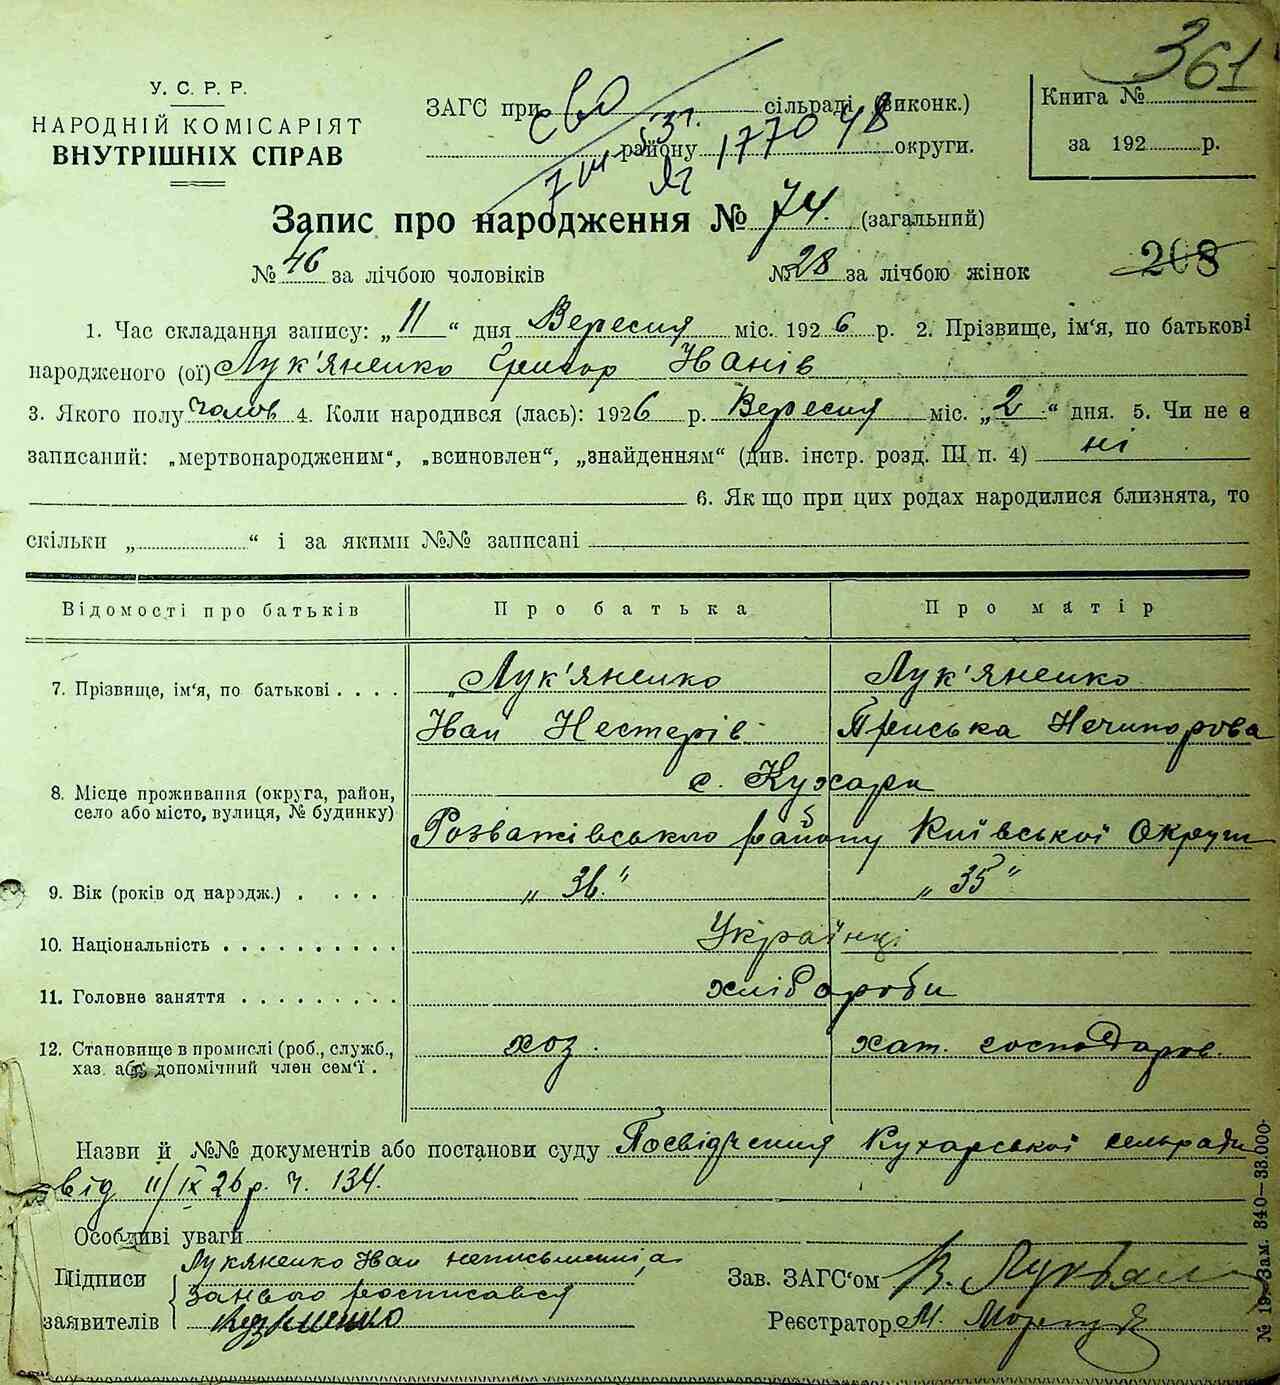 361
У. С. Р. Р.
НАРОДНІЙ КОМІСАРІЯТ
ВНУТРІШНІХ СПРАВ
ЗАГС при сільраді (виконк.)
району округи.
177048
Книга №
за 192 р.
Запис про народження № 74. (загальний)
№ 46 за лічбою чоловіків № 28 за лічбою жінок
208
1. Час складання запису: „11“ дня Вересня міс. 1926 р. 2. Прізвище, ім'я, по батькові
народженого (ої) Лук'яненко Григор Иванів
3. Якого полу чолов 4. Коли народився (лась): 1926 р. Вересня міс. „2“ дня. 5. Чи не є
записаний: „мертвонародженим“, „всиновлен“, „знайденням“ (див. інстр. розд. III п. 4) ні
6. Як що при цих родах народилися близнята, то
скільки „ “ і за якими №№ записані
Відомості про батьків Про батька Про матір
7. Прізвище, ім'я, по батькові . . . . Лук'яненко Лук'яненко
Иван Нестерів Приська Нечипорова
8. Місце проживання (округа, район, село або місто, вулиця, № будинку) с. Кухари
Розважівського району Київської Округи
9. Вік (років од народж.) . . . . „36.“ „35“
10. Національність . . . . . . . . . . Українці
11. Головне заняття . . . . . . . . . хлібороби
12. Становище в промислі (роб., служб., хаз. або допомічний член сем'ї . хоз. хат. господаров.
Назви й №№ документів або постанови суду Посвідчення Кухарської сельради
від 11/IX 26 р. ч. 134.
Особливі уваги
Підписи заявителів
Лукяненко Иван неписьменні, а
за нього росписався
Кузьменко
Зав. ЗАГС'ом В.
Реєстратор М.
№ 19—Зам. 340—33.000